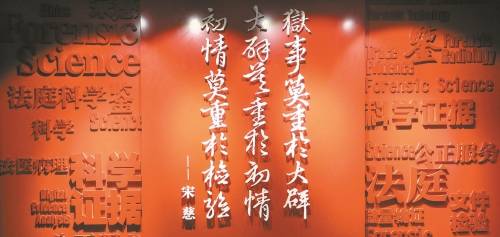 Forensic
Science
法庭科学
鉴
科学
Science
法医病理
科学
证据
獄事莫重於大辟
大辟莫重於初情
初情莫重於檢驗
——宋慈
鉴
Forensic
Radiology
Forensic Science
科学证据
Science
公正服务
法庭
文件